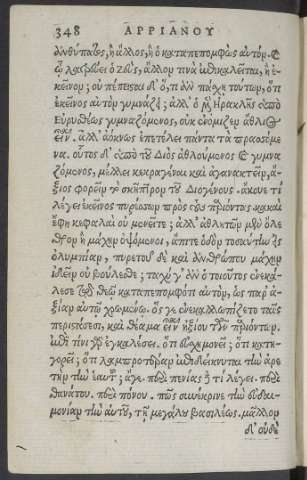 348 ΑΡΡΙΑΝΟΥ
ἀνθύπατος, ἢ ἄλλος, ἢ ὁ καταπεπομφὼς αὐτόν. καὶ
ᾧ λατρεύει ὁ Ζεὺς, ἄλλον τινὰ ἐπικαλεῖται, ἢ ἐ-
κεῖνον; οὐ πέπεισται δ', ὅ,τι ἂν πάσχῃ τούτων, ὅτι
ἐκεῖνος αὐτὸν γυμνάζει; ἀλλ' ὁ μὲν Ηρακλῆς ὑπὸ
Εὐρυσθέως γυμναζόμενος, οὐκ ἐνόμιζεν ἄθλιος
εἶναι. ἀλλ' ἀόκνως ἐπετέλει πάντα τὰ προσταττόμε-
να. οὗτος δ' ὑπὸ τοῦ Διὸς ἀθλούμενος καὶ γυμνα
ζόμενος, μέλλει κεκραγέναι καὶ ἀγανακτεῖν, ἄ-
ξιος φορεῖν τὸ σκῆπτρον τὸ Διογένους. ἄκουε τί
λέγει ἐκεῖνος πυρέσσων πρὸς τοὺς παριόντας. κακαὶ
ἔφη κεφαλαὶ οὐ μενεῖτε; ἀλλ' ἀθλητῶν μὲν ὄλε
θρον ἢ μάχην ὀψόμενοι, ἄπιτε ὁδὸν τοσαύτην εἰς
ὀλυμπίαν, πυρετοῦ δὲ καὶ ἀνθρώπου μάχην
ἰδεῖν οὐ βούλεσθε; τάχα γ' ἂν ὁ τοιοῦτος ἐνεκά-
λεσε τῷ θεῷ καταπεπομφότι αὐτὸν, ὡς παρ' ἀ-
ξίαν αὐτῷ χρωμένῳ. ὅς γε ἐνεκαλλωπίζετο ταῖς
περιστάσεσι, καὶ θέαμα εἶναι ἠξίου τῶν παριόντων.
ἐπὶ τίνι γὰρ ἐγκαλέσει; ὅτι εὐσχημονεῖ; ὅτι κατη-
γορεῖ; ὅτι λαμπροτέραν ἐπιδείκνυται τὴν ἀρε
τὴν τὴν ἑαυτοῦ; ἄγε, περὶ πενίας δὲ τί λέγει. περὶ
θανάτου. περὶ πόνου. πῶς συνέκρινε τὴν εὐδαι-
μονίαν τὴν αὑτοῦ, τῇ μεγάλου βασιλέως. μᾶλλον
δ' οὐδὲ